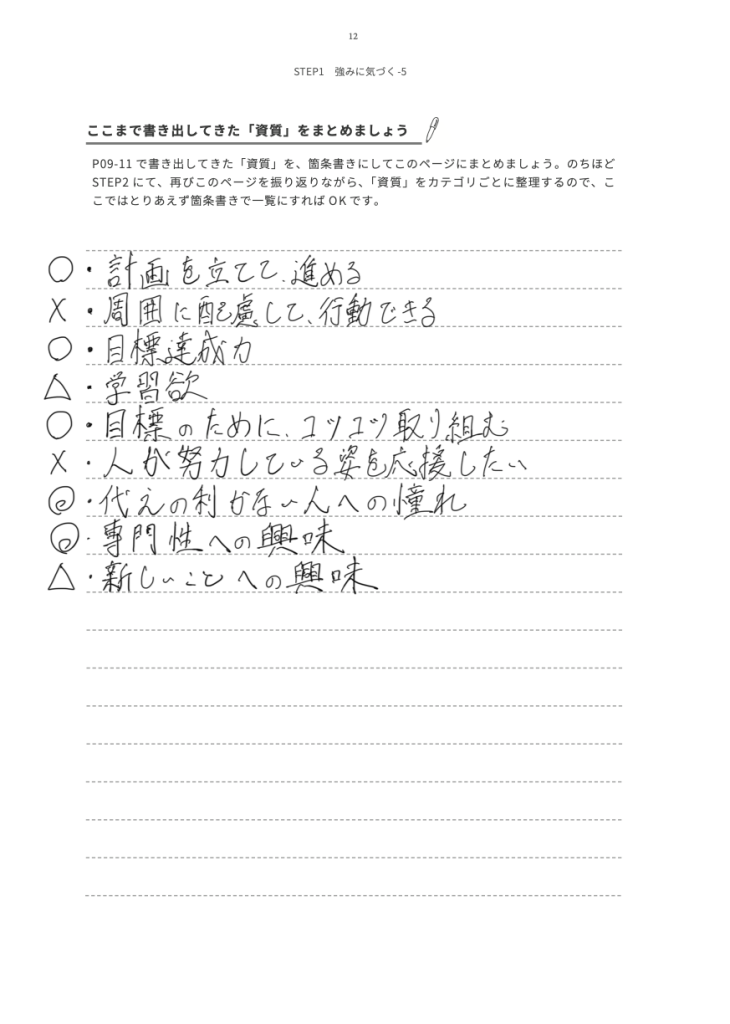 12
STEP1 強みに気づく-5
ここまで書き出してきた「資質」をまとめましょう
P09-11 で書き出してきた「資質」を、箇条書きにしてこのページにまとめましょう。のちほど
STEP2 にて、再びこのページを振り返りながら、「資質」をカテゴリごとに整理するので、こ
こではとりあえず箇条書きで一覧にすれば OK です。
○・計画を立てて、進める
×・周囲に配慮して、行動できる
○・目標達成力
△・学習欲
○・目標のために、コツコツ取り組む
×・人が努力している姿を応援したい
◎・代えの利かない人への憧れ
◎・専門性への興味
△・新しいことへの興味